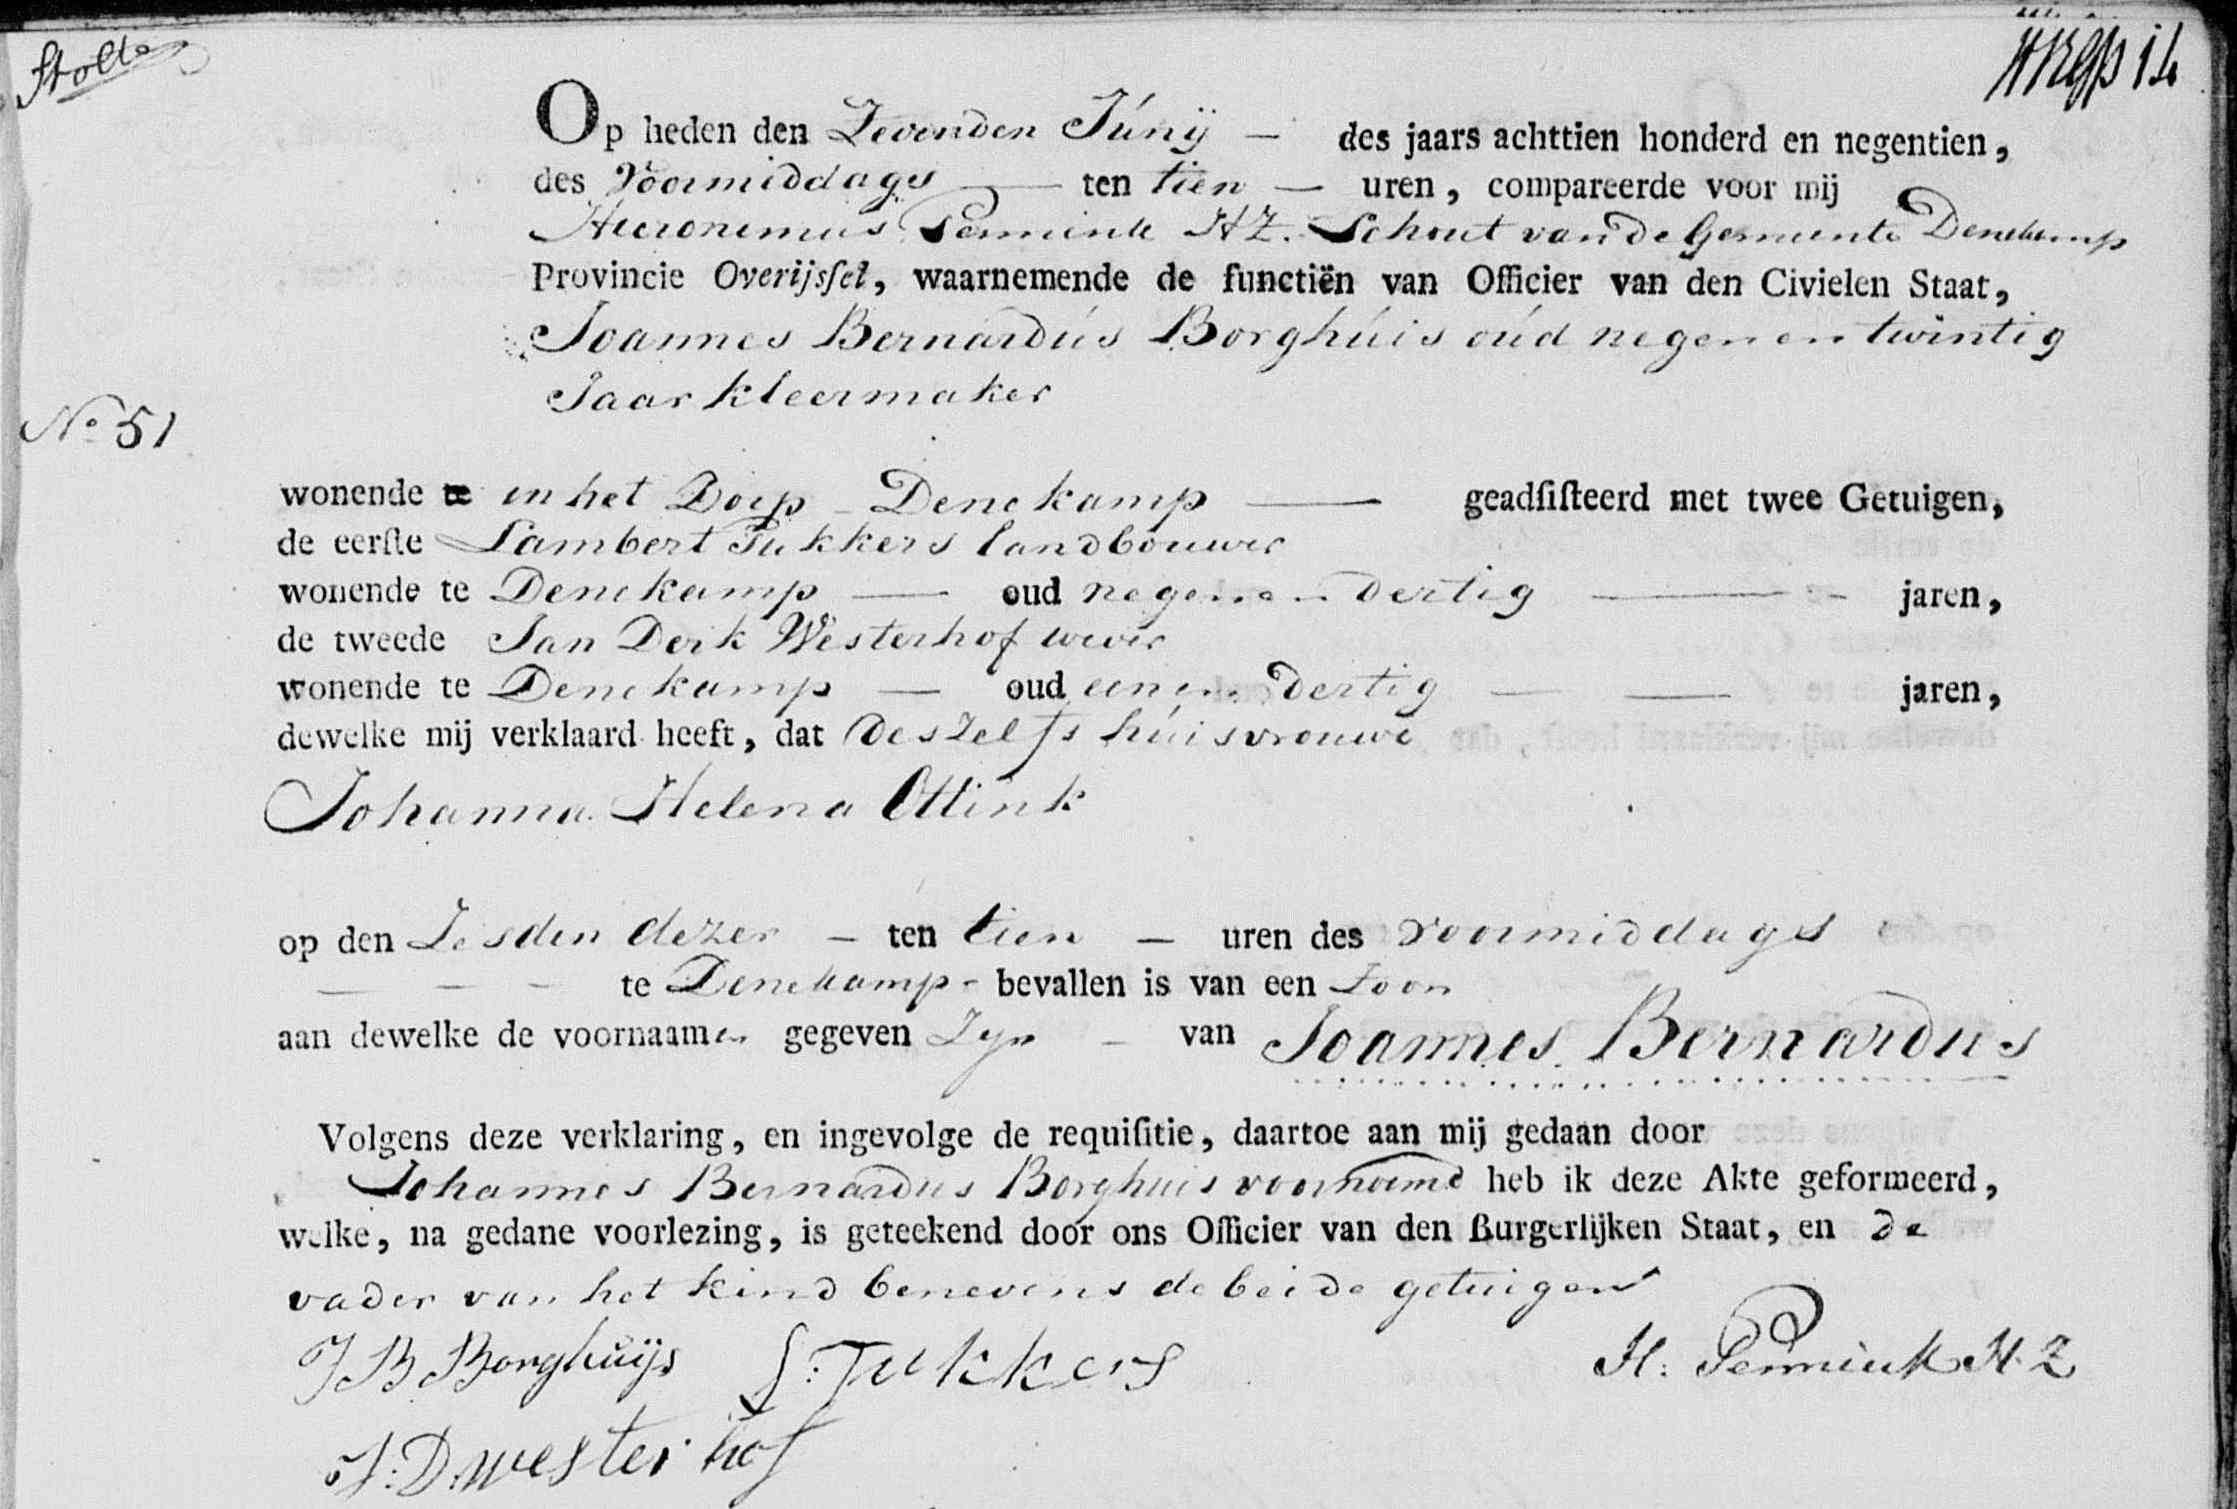 Stolte
Op heden den Zevenden Júnij — des jaars achttien honderd en negentien,
des Voormiddags — ten tien — uren, compareerde voor mij
Hieronimus Pennink HZ. Schout van de Gemeente Denekamp
Provincie Overijsſel, waarnemende de functiën van Officier van den Civielen Staat,
Joannes Bernardús Borghúis oúd negen en twintig
Jaar kleermaker
No 51
wonende te in het Dorp Denekamp — geadſiſteerd met twee Getuigen,
de eerſte Lambert Tukkers landbouwer
wonende te Denekamp — oud negen en dertig — jaren,
de tweede Jan Derk Westerhof wever
wonende te Denekamp — oud een en dertig — — jaren,
dewelke mij verklaard heeft, dat deszelfs húisvrouwe
Johanna Helena Ottink
op den Zesden dezer — ten tien — uren des voormiddags
— — — te Denekamp - bevallen is van een Zoon
aan dewelke de voornaamen gegeven Zyn — van Joannes Bernardus
Volgens deze verklaring, en ingevolge de requiſitie, daartoe aan mij gedaan door
Johannes Bernardus Borghuis voornoemd heb ik deze Akte geformeerd,
welke, na gedane voorlezing, is geteekend door ons Officier van den Burgerlijken Staat, en de
vader van het kind benevens de beide getuigen
JB Borghuijs L: Tukkers H: Pennink H.Z
J: D. Westerhof